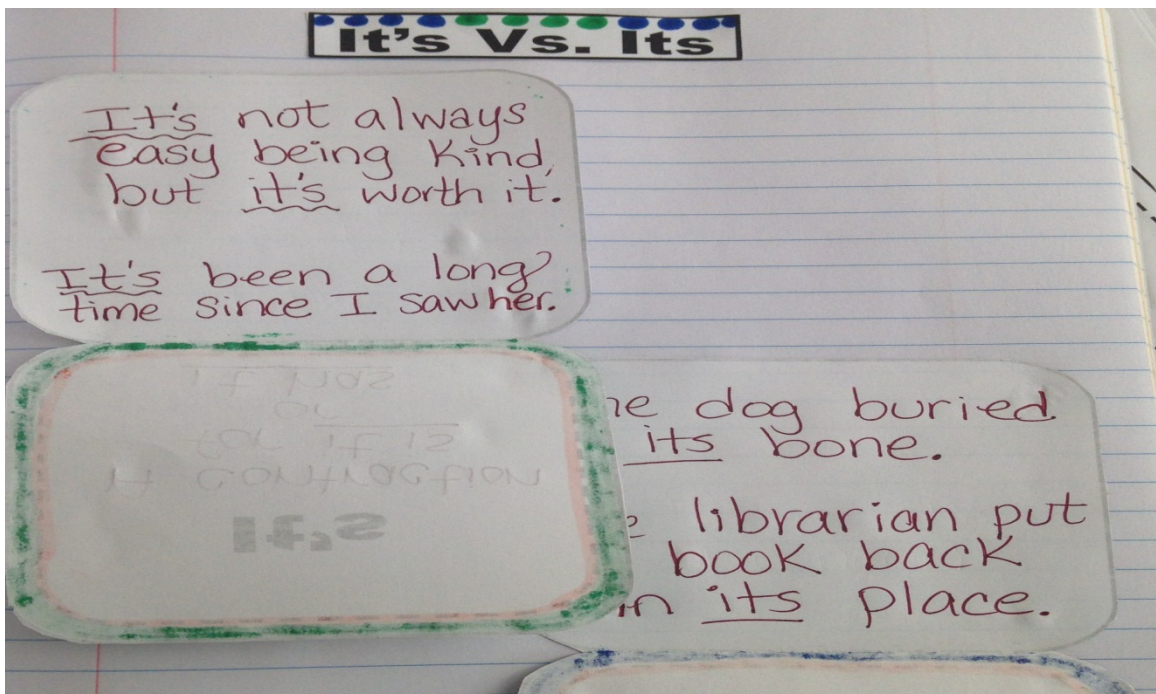 It's Vs. Its
It's not always
easy being kind,
but it's worth it.
It's been a long
time since I saw her.
it has
or
for it is
A contraction
It's
dog buried
its bone.
librarian put
book back
in its place.